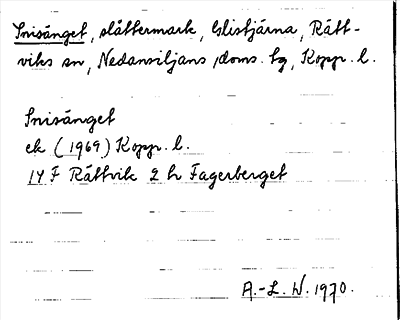 Snisänget, slåttermark, Glistjärna, Rätt-
viks sn, Nedansiljans doms. tg, Kopp. l.
Snisänget
ek (1969) Kopp. l.
14 F Rättvik 2 h Fagerberget
A.-L. W. 1970.